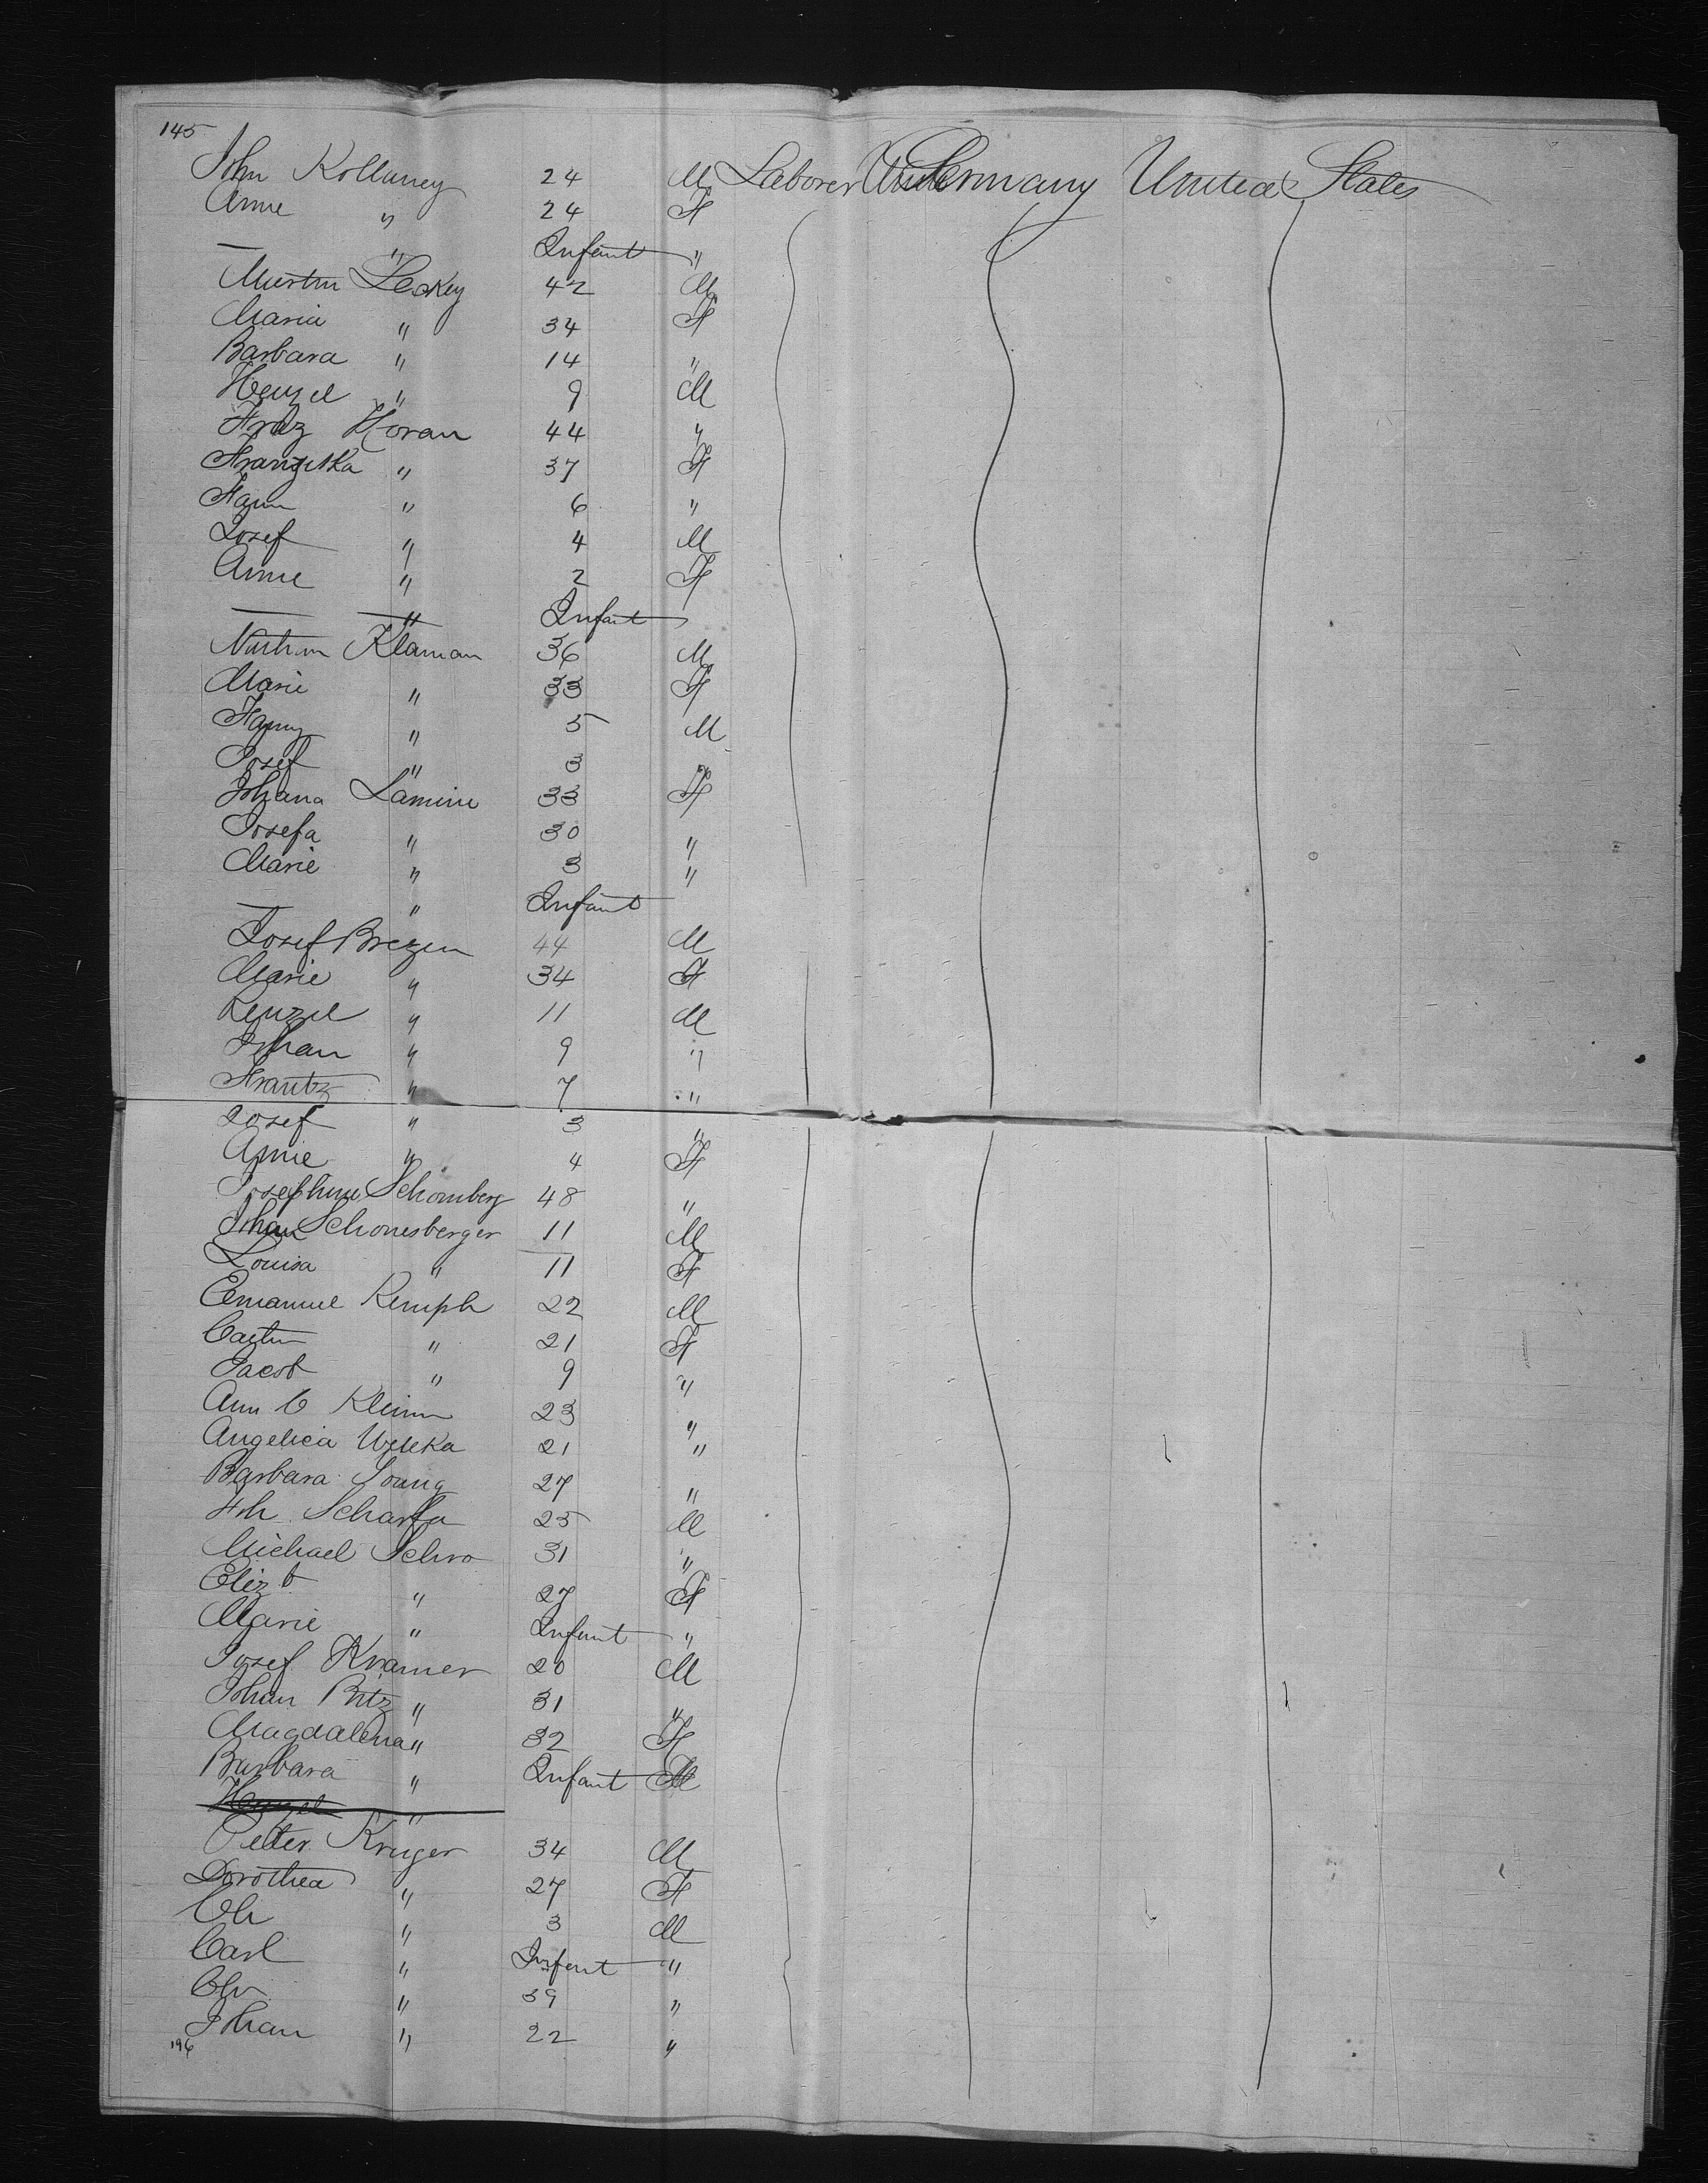 145
John Kollaney 24 M Laborer Germany United States
Anne " 24 F
— " Infant "
Martin Leckey 42 M
Maria " 34 F
Barbara " 14 "
Wenzel " 9 M
Franz Horan 44 "
Franziska " 37 F
Fann " 6 "
Josef " 4 M
Anne " 2 F
— " Infant
Klaman 36 M
Marie " 33 F
" 5 M
Josef " 3 "
Johana Lamine 33 F
Josefa " 30 "
Marie " 3 "
— " Infant
Josef Brezen 44 M
Marie " 34 F
Renzel " 11 M
Johan " 9 "
Frantz " 7 "
Josef " 3 "
Annie " 4 F
Josephine Schomberg 48 "
Johan Schonesberger 11 M
Louisa " 11 F
Emanuel Kemph 22 M
" 21 F
Jacob " 9 "
Ann C Kleinn 23 "
Angelica 21 "
Barbara Young 27 "
Joh Scharfa 25 M
Michael Schro 31 "
Elizt " 27 F
Marie " Infant "
Josef Kramer 20 M
Johan Pitz " 31 "
Magdalena " 32 F
Barbara " Infant
Wenzel "
Peter Kruger 34 M
Dorothea " 27 F
Ch " 3 M
Carl " Infant "
Chr " 39 "
Johan " 22 "
196